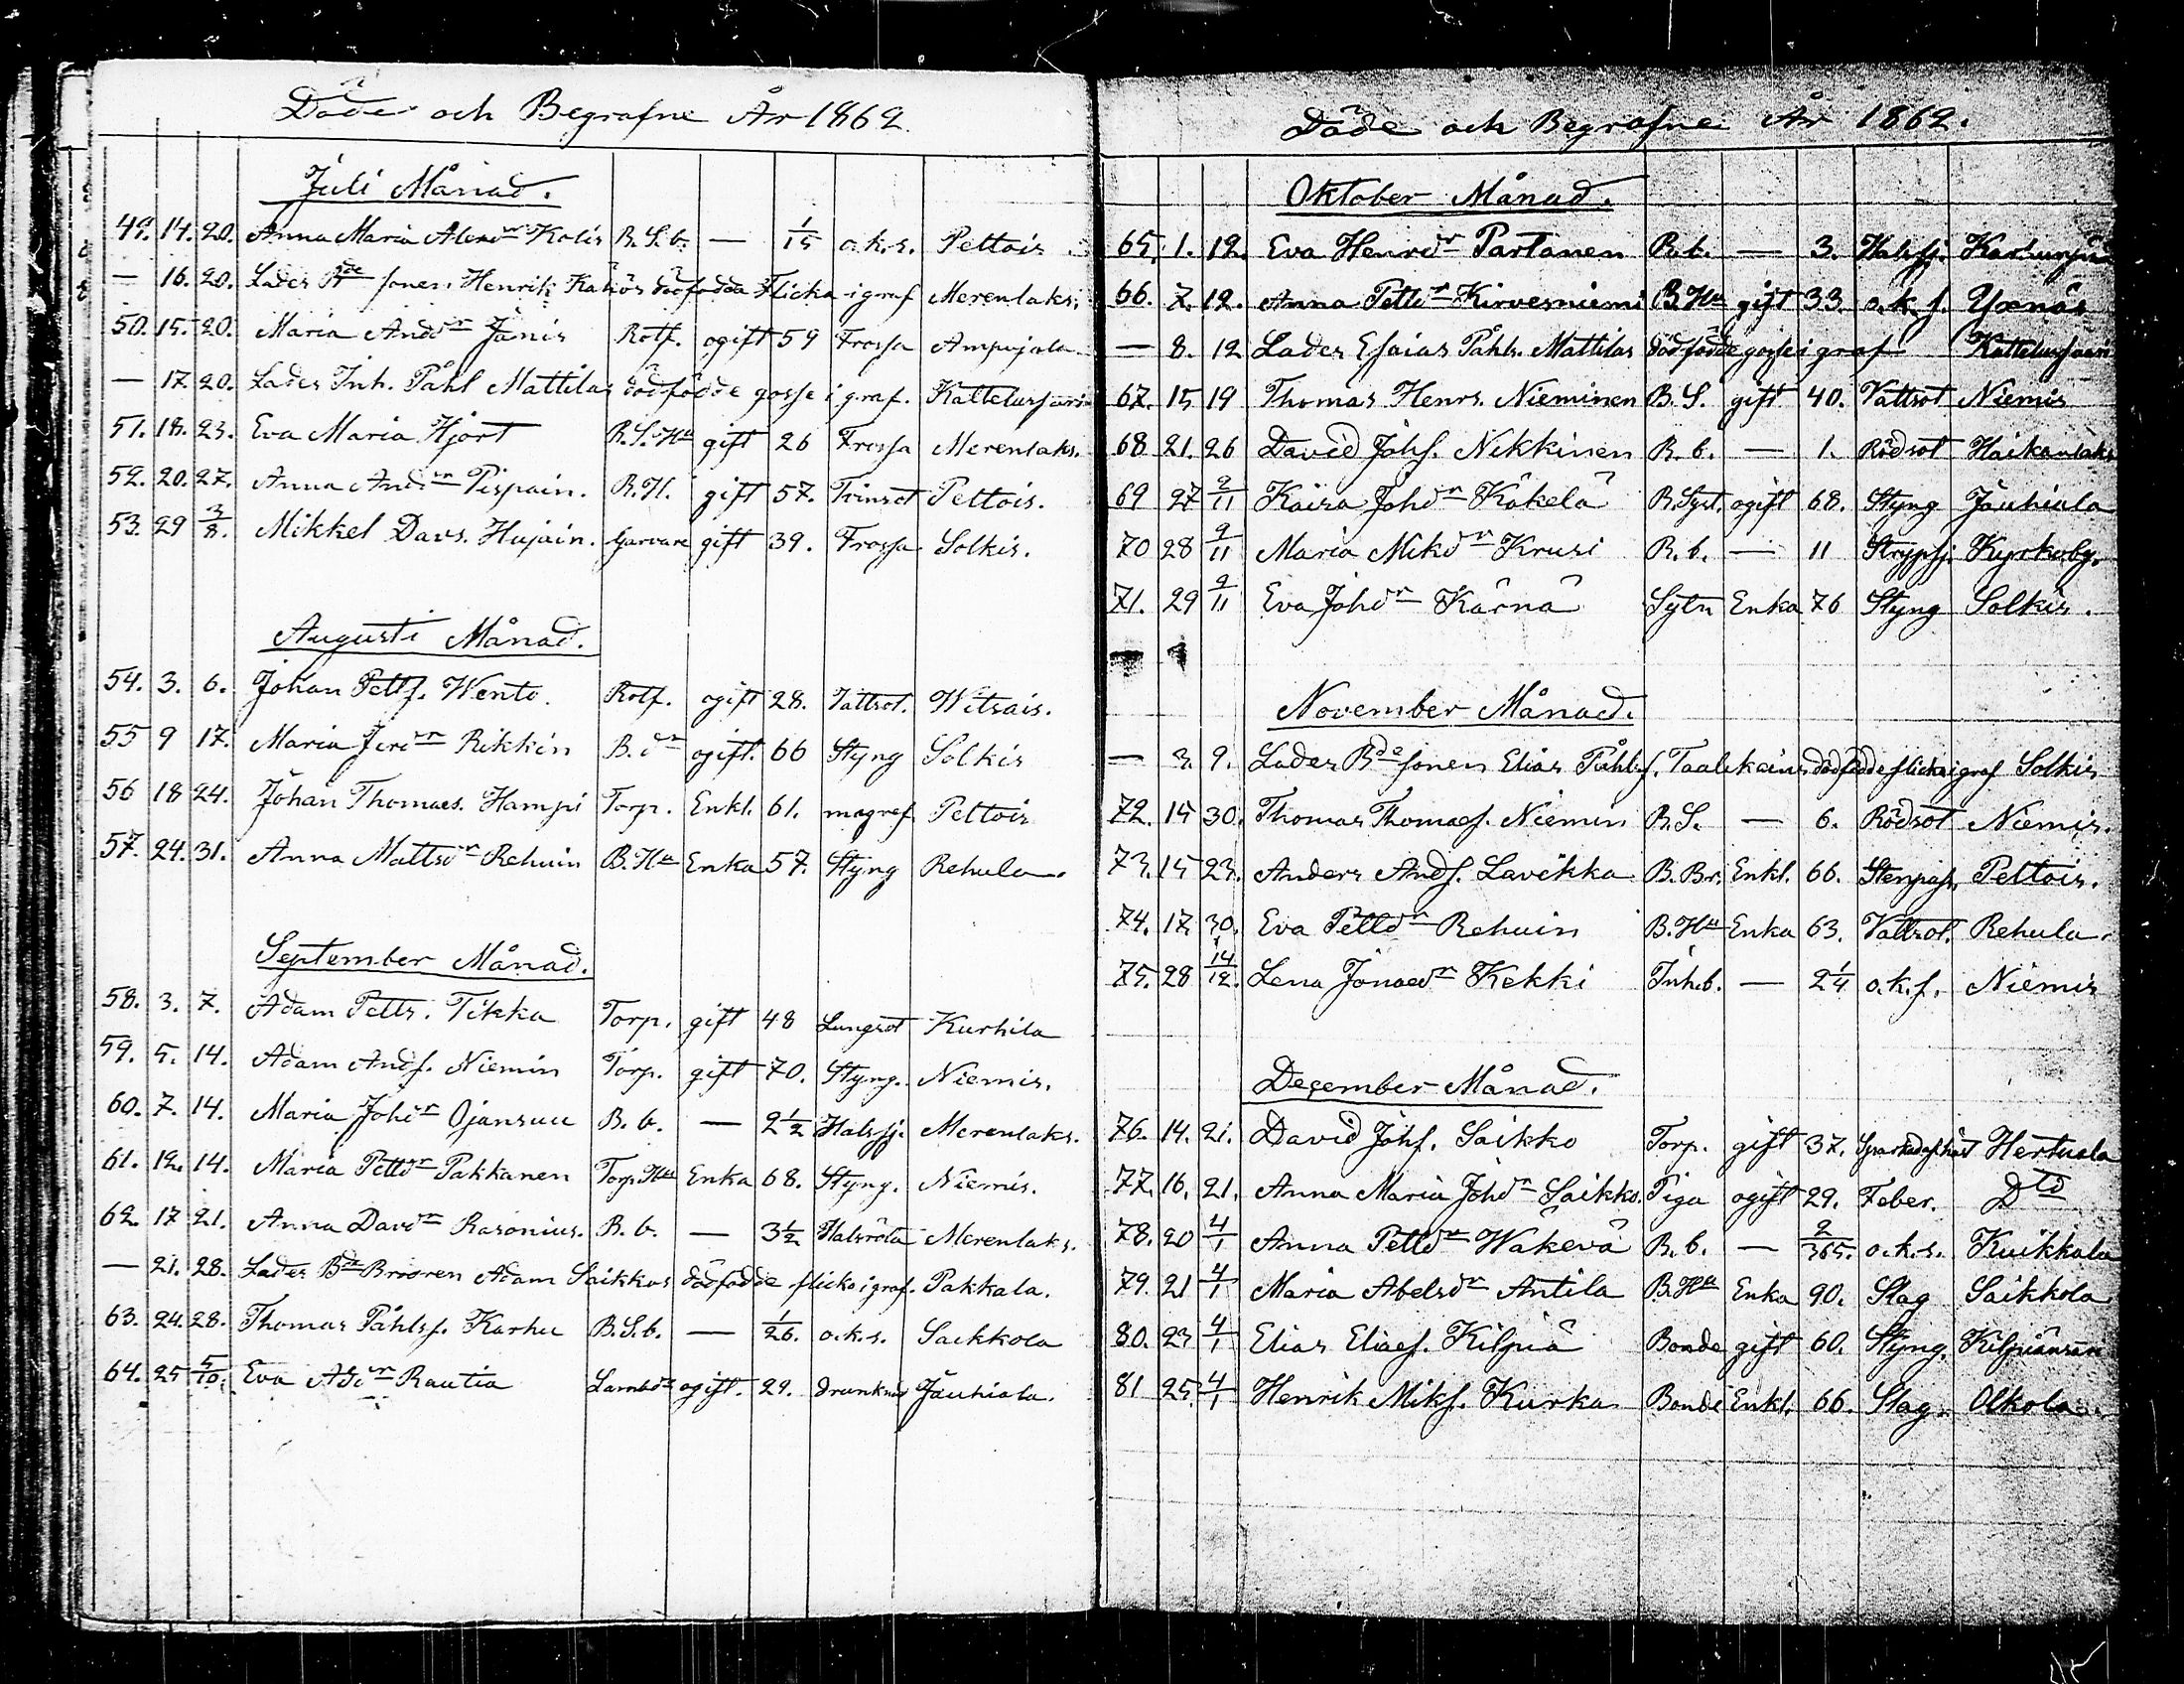 Döde och Begrafne År 1862.
Juli Månad.
49. 14. 20. Anna Maria Alexdr Kolis B.S.b. — 1/15 o.k.s. Peltois
— 16. 20. Lades Bde sonen Henrik Kähös dödfödda Flicka i graf Merenlaks.
50. 15. 20. Maria Anddr Jänis Rotf. ogift 59 Frossa Ampujala
— 17. 20. Lades Inh. Påhl Mattilas dödfödde gosse i graf. Kattelussaari
51. 18. 23. Eva Maria Hjort B.S.Hu gift 26 Frossa Merenlaks.
52. 20. 27. Anna Anddr Pispain. B.H. gift 57. Tvinsot Peltois.
53. 29 3/8. Mikkel Davs. Hujain. Garvare gift 39. Frossa Solkis.
Augusti Månad.
54. 3. 6. Johan Petts. Wento. Rotf. ogift 28. Vattsot. Witsais.
55 9 17. Maria Jerdr Rikkin B.dr ogift. 66 Styng Solkis
56 18 24. Johan Thomaes. Hampi Torp. Enkl. 61. magref Peltois
57. 24. 31. Anna Mattsdr Rehuin B.Hu Enka 57. Styng Rehula.
September Månad.
58. 3. 7. Adam Petts. Tikka Torp. gift 48 Lungsot Kurhila
59. 5. 14. Adam Ands. Niemin Torp. gift 70. Styng. Niemis.
60. 7. 14. Maria Johdr Ojansuu B.b. — 2 1/2 Halssj. Merenlaks.
61. 12. 14. Maria Pettdr Pakkanen Torp.Hu Enka 68. Styng. Niemis.
62. 17 21. Anna Davdr Rasonius. B.b. — 3 1/2 Halsröta Merenlaks.
— 21. 28. Lades Bde Brodren Adam Saikkos dödfödde flicka i graf. Pakkala.
63. 24. 28. Thomas Påhlss. Karhu B.S.b. — 1/26. o.k.s. Saikkola
64. 25 5/10. Eva Addr Rautia ogift. 29. drunknad Jäuhiala.
Döde och Begrafne År 1862.
Oktober Månad.
65. 1. 12. Eva Henrdr Partanen B.b. — 3. Halssj.
66. 7. 12. Anna Pettdr Kirvesniemi B.Hu gift 33. o.k.s. Yxnäs
— 8. 12 Lades Esaias Påhls. Mattilas dödfödde gosse i graf Kattelussaari
67. 15 19 Thomas Henrs. Nieminen B.S. gift 40. Vattsot Niemis
68 21. 26 David Johs. Nikkinen B.b. — 1. Rödsot Haikanlaks
69 27 2/11 Kaisa Johdr Käkelä B.Syst. ogift 68. Styng Jäuhiala
70 28 9/11 Maria Mikdr Krusi B.b. — 11 Strypsj. Kyrkoby.
71. 29 9/11 Eva Johdr Kärnä Sytn Enka 76 Styng Solkis.
November Månad.
— 3. 9. Lades Bde sonen Elias Påhls. Taalikains dödfödde flicka i graf Solkis
72. 15 30. Thomas Thomaes. Niemin B.S. — 6. Rödsot Niemis.
73. 15 23. Anders Ands. Lavikka B.Br. Enkl. 66. Stenpass. Peltois.
74. 17. 30. Eva Pettdr Rehuin B.Hu Enka 63. Vattsot. Rehula.
75. 28 14/12. Lena Jonaedr Kekki Inh.b. — 2 1/4 o.k.s. Niemis
December Månad.
76. 14. 21. David Johs. Saikko Torp. gift 37. Sparkad af häst Hertuala
77. 16. 21. Anna Maria Johdr Saikko. Piga ogift 29. Feber. Dto
78. 20 4/1 Anna Pettdr Wäkevä B.b. — 2/365. o.k.s. Kuikkala
79. 21 4/1 Maria Abelsdr Antila B.Hu Enka 90. Slag Saikkola
80. 23 4/1 Elias Eliaes. Kilpiä Bonde gift 60. Styng.
81 25. 4/1 Henrik Miks. Kurka Bonde Enkl. 66. Slag. Olkola.